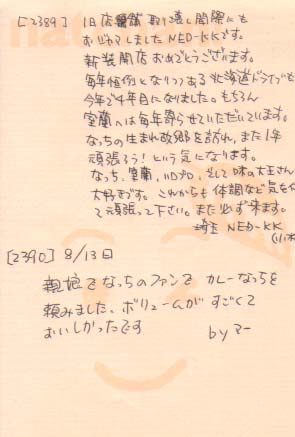 [2389] 旧店舗 取り壊し間際にも
おじゃましましたNED-KKです。
新装開店おめでとうございます。
毎年恒例となりつつある北海道ドライブも
今年で4年目になりました。もちろん
室蘭へは毎年寄らせていただいています。
なっちの生まれ故郷を訪れ、また1年
頑張ろう!という気になります。
なっち、室蘭、ハロプロ、そして味の大王さん
大好きです。これからも体調など気を付
て頑張って下さい。また必ず来ます。
埼玉 NED-KK
[2390] 8/13日
親娘でなっちのファンで カレーなっちを
頼みました、ボリュームが すごくて
おいしかったです
by マー